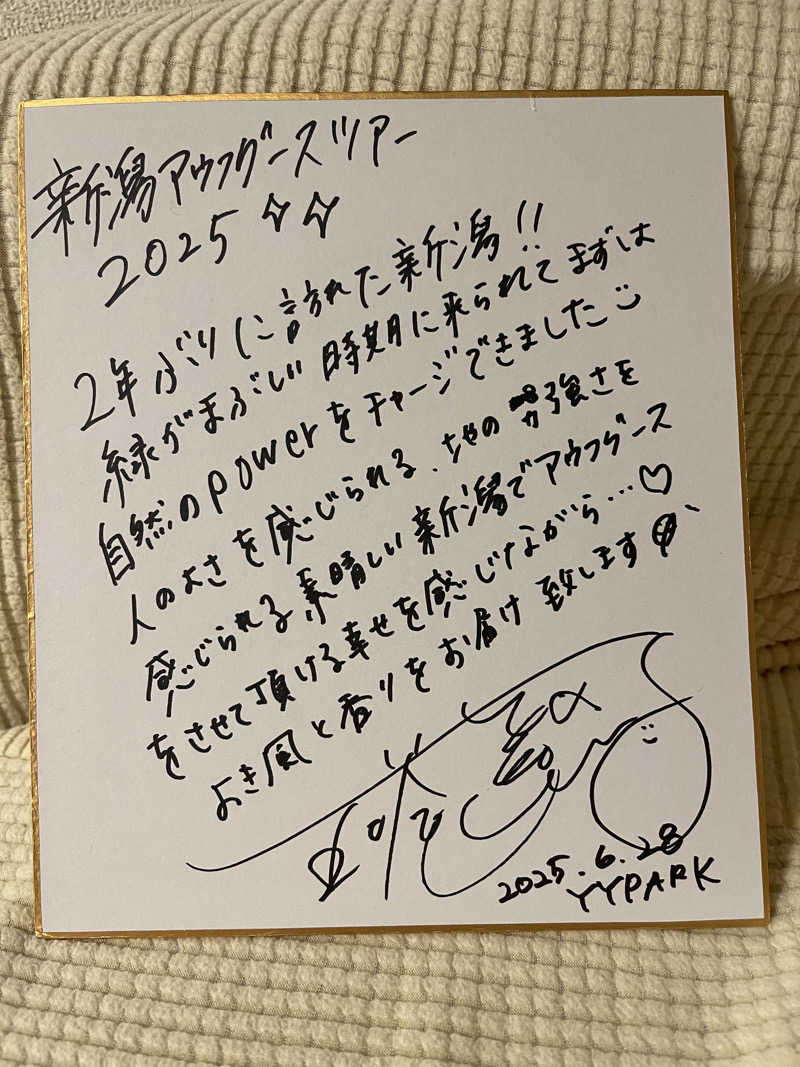 新潟アウフグースツアー
2025
2年ぶりに訪れた新潟!!
緑がまぶしい時期に来られてまずは
自然のpowerをチャージできました
人のよさを感じられる、地の力強さを
感じられる素晴しい新潟でアウフグース
をさせて頂ける幸せを感じながら…♡
よき風と香りをお届け致します
2025.6.28
YYPARK